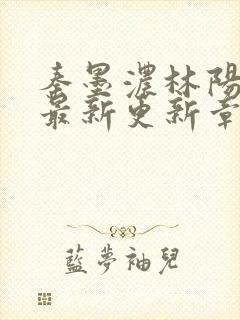 秦墨濃林陽
最新更新章
藍夢袖兒